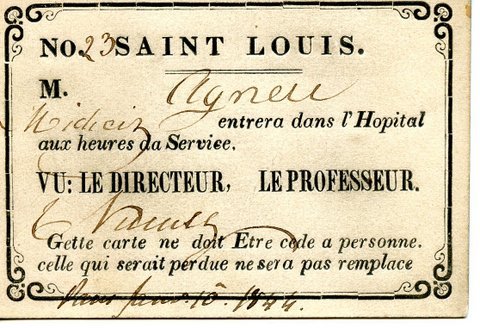 No. 23 SAINT LOUIS.
M. Agnew
entrera dans l'Hopital
aux heures da Service.
VU: LE DIRECTEUR, LE PROFESSEUR.
Gette carte ne doit Etre cede a personne.
celle qui serait perdue ne sera pas remplace
1844.